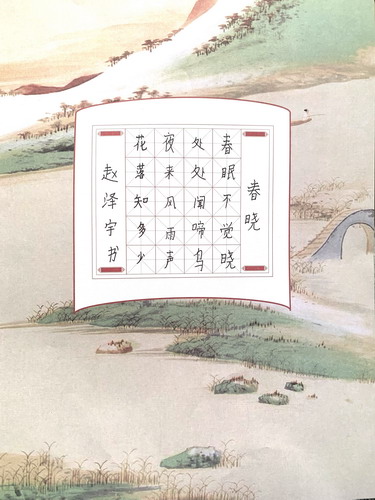 春晓
春眠不觉晓
处处闻啼鸟
夜来风雨声
花落知多少
赵泽宇书